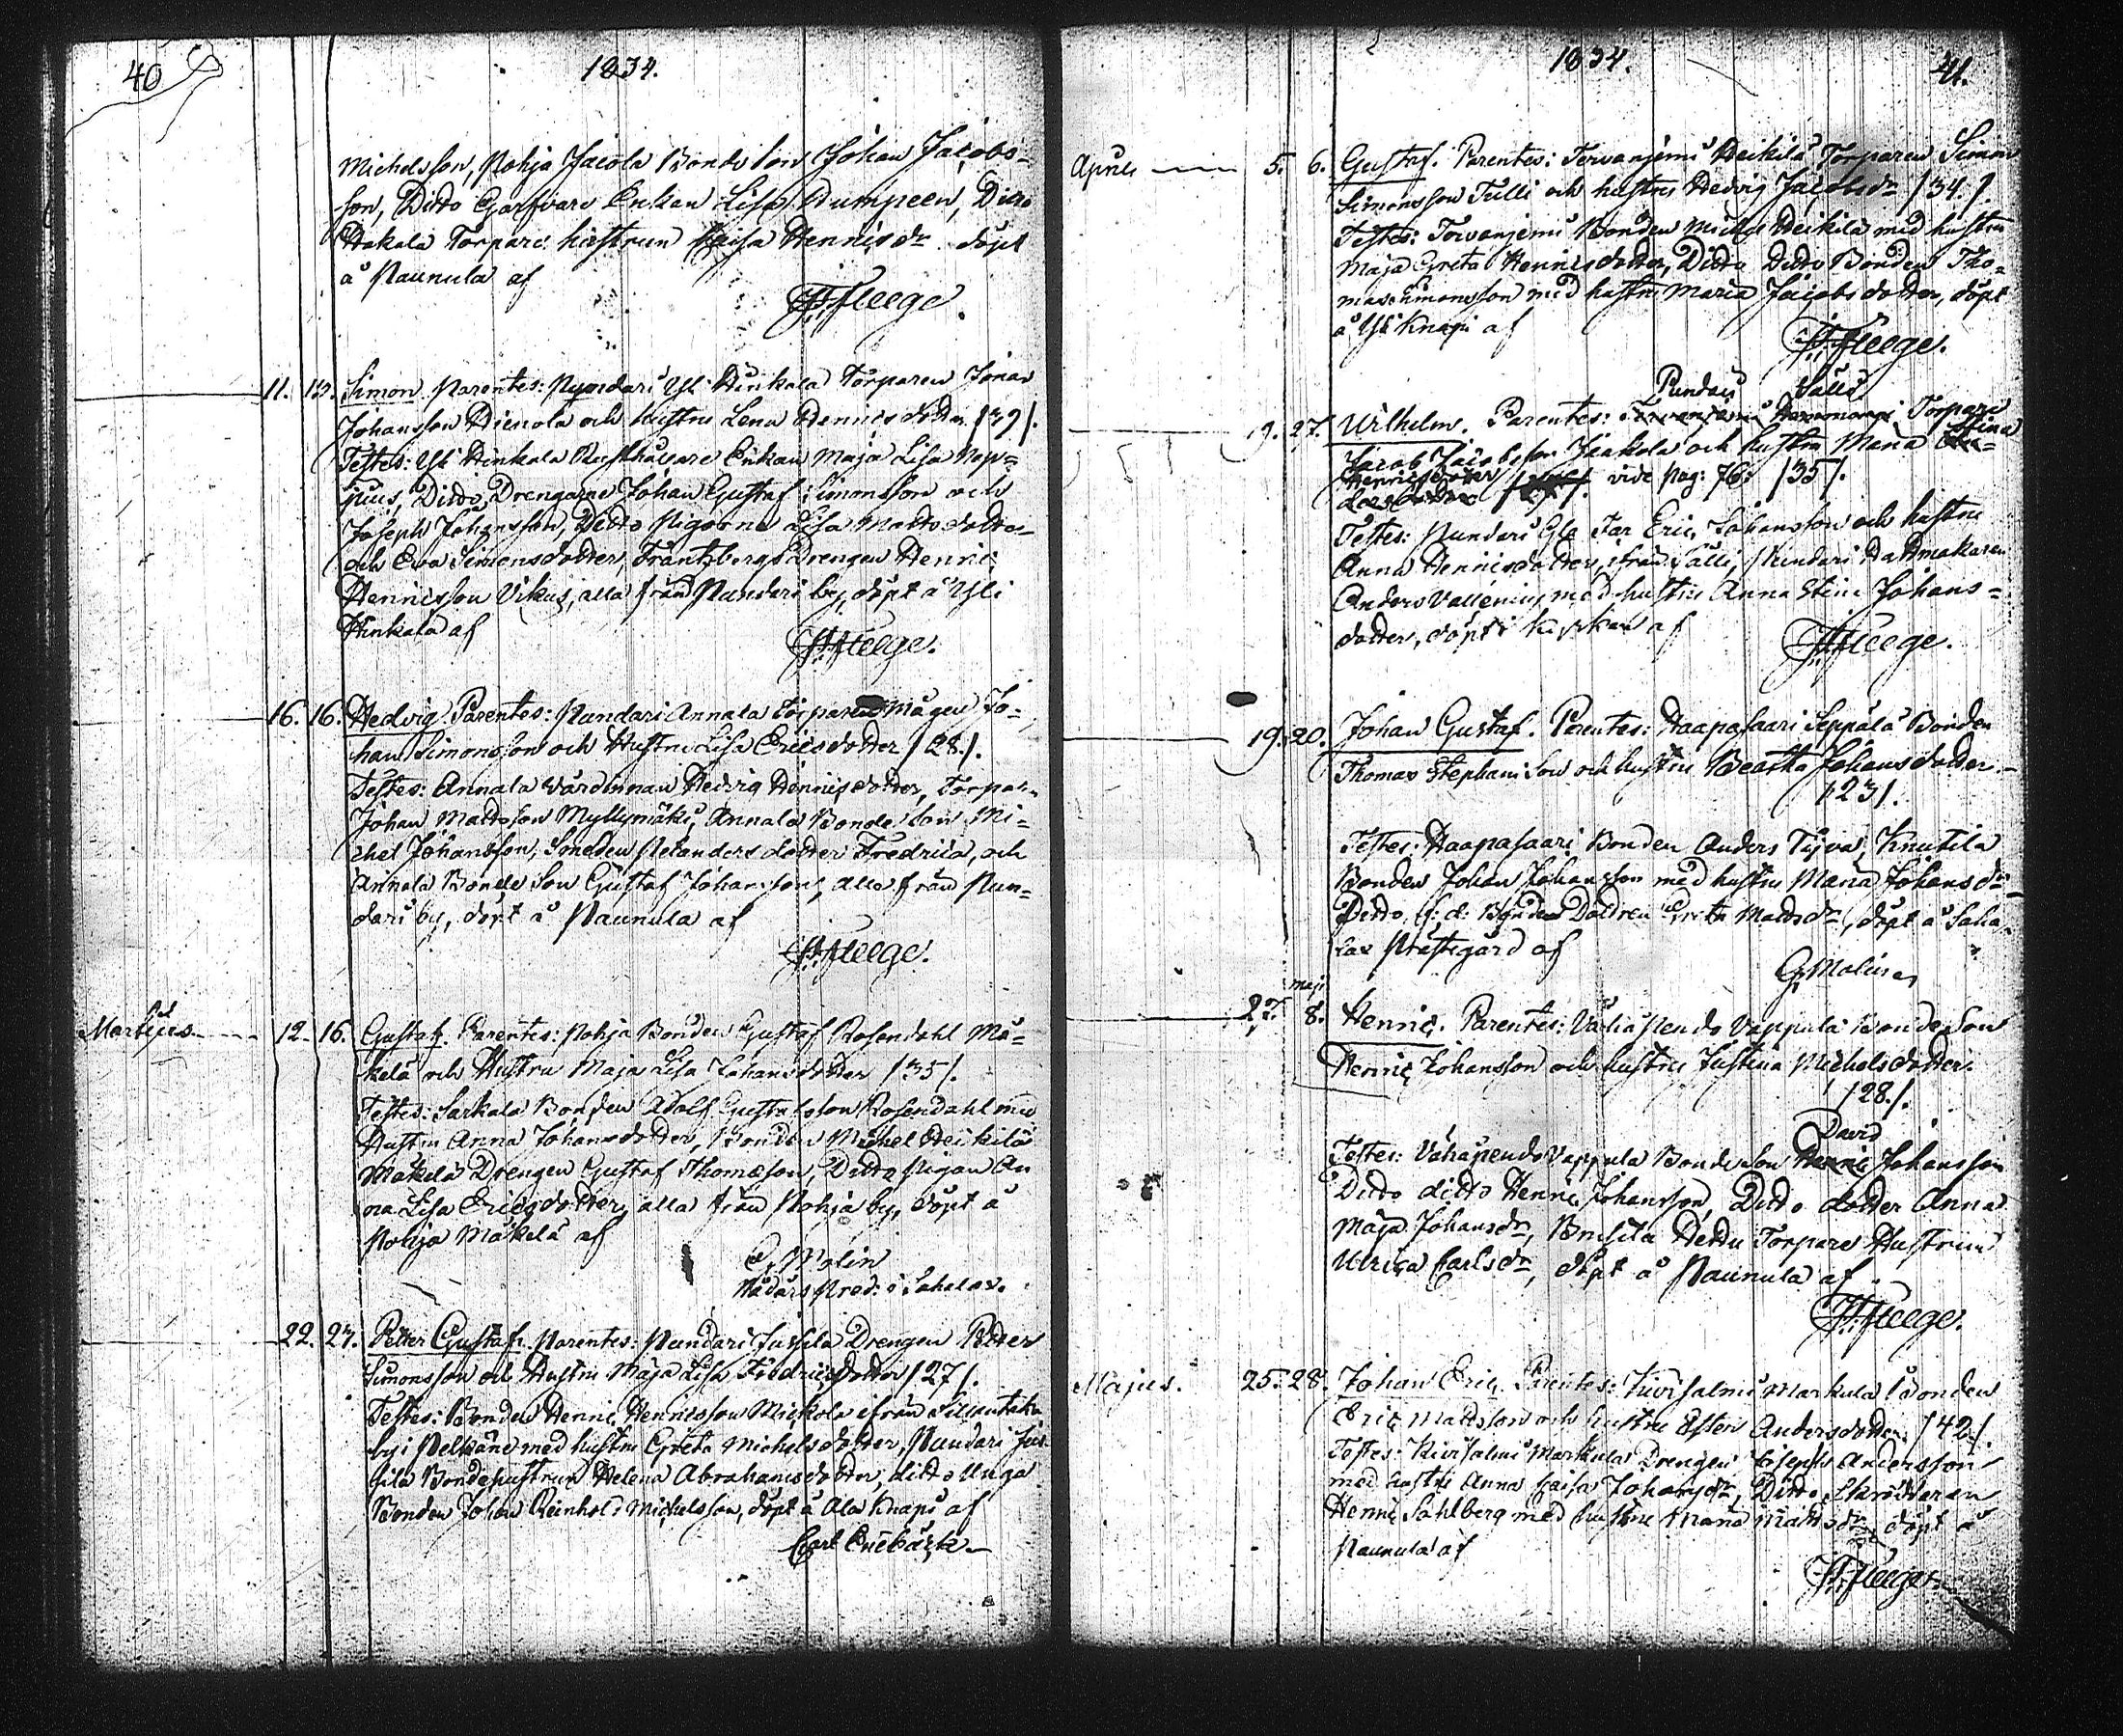 40
1834.
Michelsson, Pohja Jacola Bonde son Johan Jacobs-
son, Ditto Garfvare Enkan Lisa Kumpeen, Ditto
Hakala Torpare hustrun Caisa Henricsdr. döpt
å Paunula af
Fleege.
11. 13. Simon. Parentes: Pundari Yli Hinkala Torparen Jonas
Johansson Hienola och hustru Lena Henricsdotter
Testes: Yli Hinkala Rusthållare Enkan Maja Lisa Nop-
juus, Ditto Drengarne Johan Gustaf Simonsson och
Joseph Johansson, Ditto Pigorna Lisa Mattsdotter
och Eva Simonsdotter, Frantzbergs Drengen Henric
Henricsson Vikus, alla från Pundari by, döpt å Yli
Hinkala af
Fleege.
16. 16. Hedvig. Parentes: Pundari Annala torparen Mågen Jo-
han Simonsson och Hustru Lisa Ericsdotter /28./.
Testes: Annala Värdinnan Hedvig Henricsdotter, Torparn
Johan Mattsson Myllymäki, Annala Bonde son Mi-
chel Johansson, dotter Fredrica, och
Annala Bonde son Gustaf Johansson, alla från Pun-
dari by, döpt å Paunula af
Fleege.
Martius 12. 16. Gustaf. Parentes: Pohja Bonden Gustaf Rosendahl Mä-
kelä och Hustru Maja Lisa Johansdotter /35/.
Testes: Sarkala Bonden Adolf Gustafsson Rosendahl med
Hustru Anna Johansdotter, Bonden Michel Heikilä
Mäkelä Drengen Gustaf Thomasson, Ditto Pigan An
na Lisa Ericsdotter, alla från Pohja by, döpt å
Pohja Mäkelä af
G. Molin
Nådårs Pred: i Sahalax.
22. 27. Petter Gustaf. Parentes: Pundari Jussila Drengen Petter
Simonsson och Hustru Maja Lisa Fredricsdotter /27/.
Testes: Bonden Henric Henricsson Mickola ifrån
by i Pelkäne med hustru Greta Michelsdotter, Pundari Jus
sila Bondehustrun Helena Abrahamsdotter, ditto Unga
Bonden Johan Reinhold Michelsson, döpt å Ala Knapi af
Carl Enebäck
1834. 41.
Aprilis 5. 6. Gustaf. Parentes: Torvanjemi Heikilä Torparen Simon
Simonsson Tulli och hustru Hedvig Jacobsdr /34./
Testes: Torvanjemi Bonden Michel Heikilä med hustru
Maja Greta Henricsdotter, Ditto Ditto Bonden Tho-
mas Simonsson med hustru Maria Jacobsdotter, döpt
å Yli Knapi af
Fleege.
Pundari Sälli
19. 27. Wilhelm. Parentes: Torpare
Stina
Jacob Jacobsson Jaakola och hustru Maria
Henricsdotter vide pag: 76: /35/.
Testes: Pundari Far Eric Johansson och hustru
Anna Henricsdotter, ifrån Sälli, Pundari Hattmakaren
Anders Vallenius med hustru Anna Stina Johans-
dotter, döpt i kyrkan af
Fleege.
19. 20. Johan Gustaf. Parentes: Haapasaari Seppälä Bonden
Thomas Stephansson och hustru Beatha Johansdotter
/23/.
Testes: Haapasaari Bonden Anders Tijva, Knutila
Bonden Johan Johansson med hustru Maria Johansdr
Ditto, f: d: Bonden Dottren Greta Mattsdr, döpt å Saha-
lax Prästegård af
G. Molin
maji
27. 8. Henric. Parentes: Vähäpendo Vappula Bondeson
Henric Johansson och hustru Justina Michelsdotter.
/28./.
David
Testes: Vähäpendo Vappula Bondeson Henric Johansson
Ditto ditto Henric Johansson, Ditto dotter Anna
Maja Johansdr, Brusila Torpare Hustrun
Ulrica Carlsdr, döpt å Paunula af
Fleege.
Majus. 25. 28. Johan Eric. Parentes: Kivisalmi Markula Bonden
Eric Mattsson och hustru Ester Andersdotter. /42/.
Testes: Kivisalmi Markula Drengen Joseph Andersson
med hustru Anna Caisa Johansdr, Ditto Skräddaren
Henric Sahlberg med hustru Maria Mattsdr, döpt å
Paunula af
Fleege.